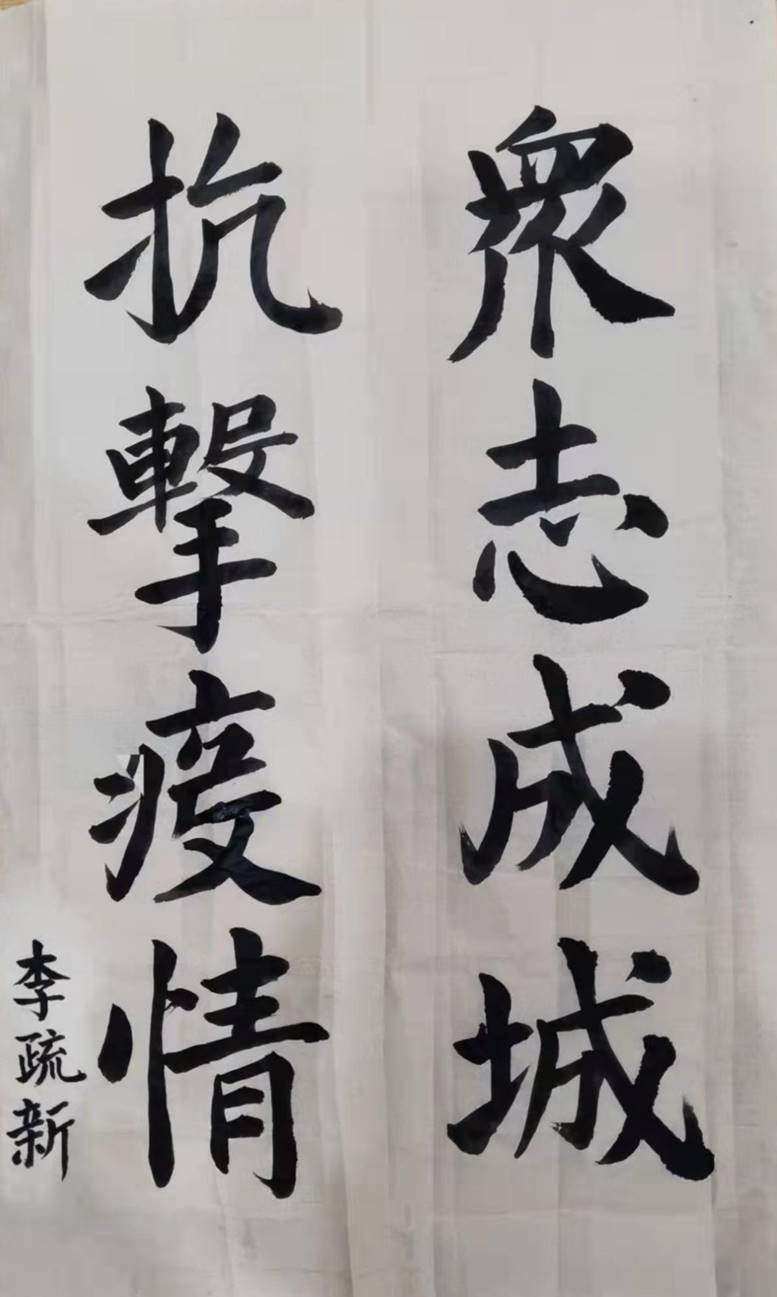 衆志成城
抗擊疫情
李疏新